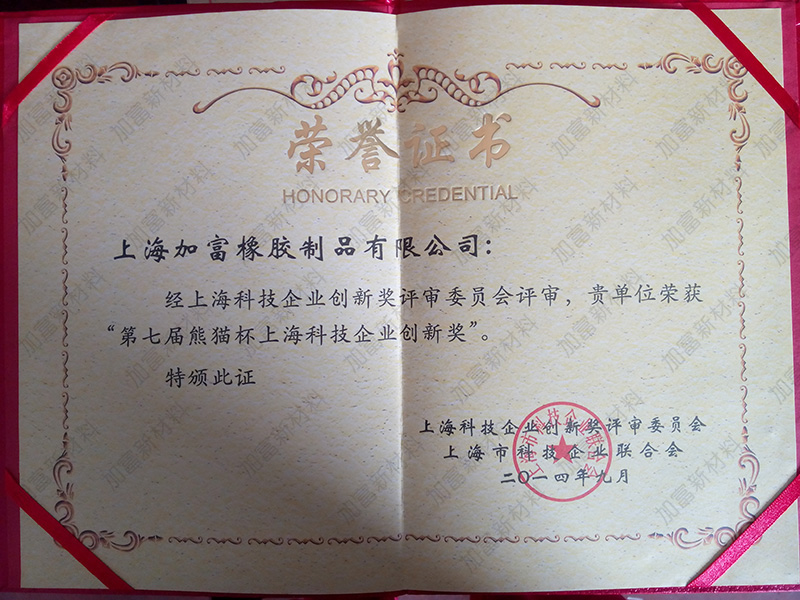 荣誉证书
HONORARY CREDENTIAL
上海加富橡胶制品有限公司：
经上海科技企业创新奖评审委员会评审，贵单位荣获
“第七届熊猫杯上海科技企业创新奖”。
特颁此证
上海科技企业创新奖评审委员会
上海市科技企业联合会
二〇一四年九月
上海市科技企业联合会
加富新材料